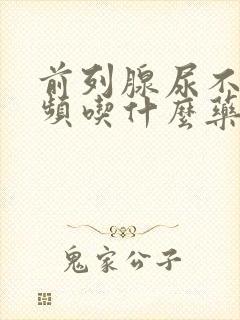 前列腺尿不
頻喫什麼藥
鬼家公子